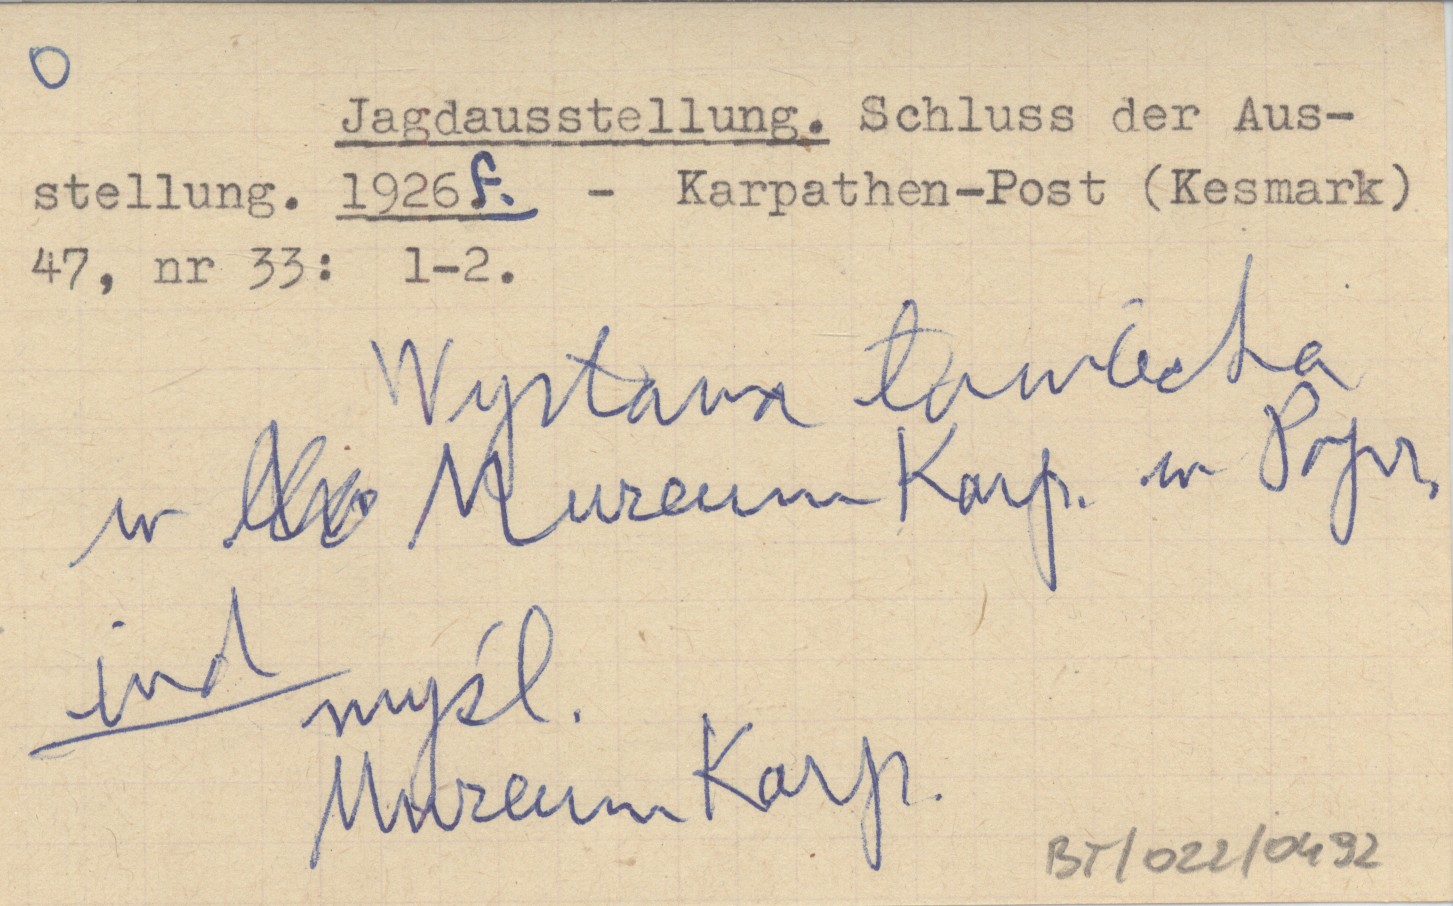 O
Jagdausstellung. Schluss der Aus-
stellung. 1926 f. - Karpathen-Post (Kesmark)
47, nr 33: 1-2.
Wystawa łowiecka
w Muzeum Karp. w
ind myśl.
Muzeum Karp.
BT/022/0492